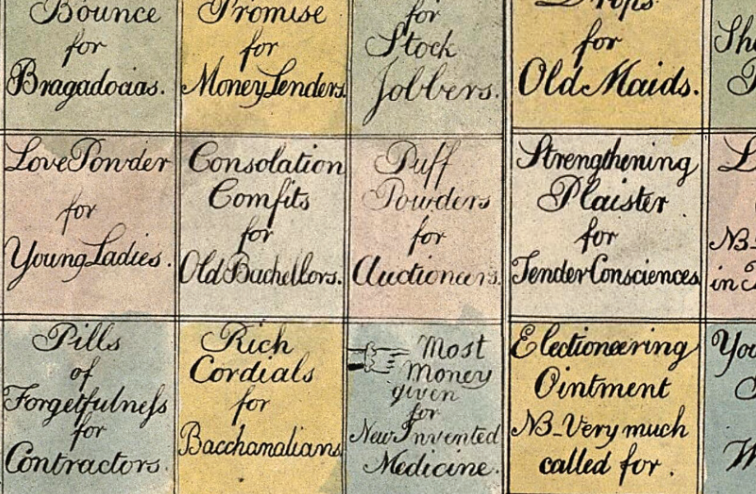 Bounce
for
Bragadocias.
Promise
for
Money Lenders.
for
Stock
Jobbers.
Drops
for
Old Maids.
Love Powder
for
Young Ladies.
Consolation
Comfits
for
Old Bachellors.
Puff
Powders
for
Auctioneers.
Strengthening
Plaister
for
Tender Consciences
NB
in
Pills
of
Forgetfulneſs
for
Contractors.
Rich
Cordials
for
Bacchanalians
Most
Money
given
for
New Invented
Medicine.
Electioneering
Ointment
NB_Very much
called for.
You